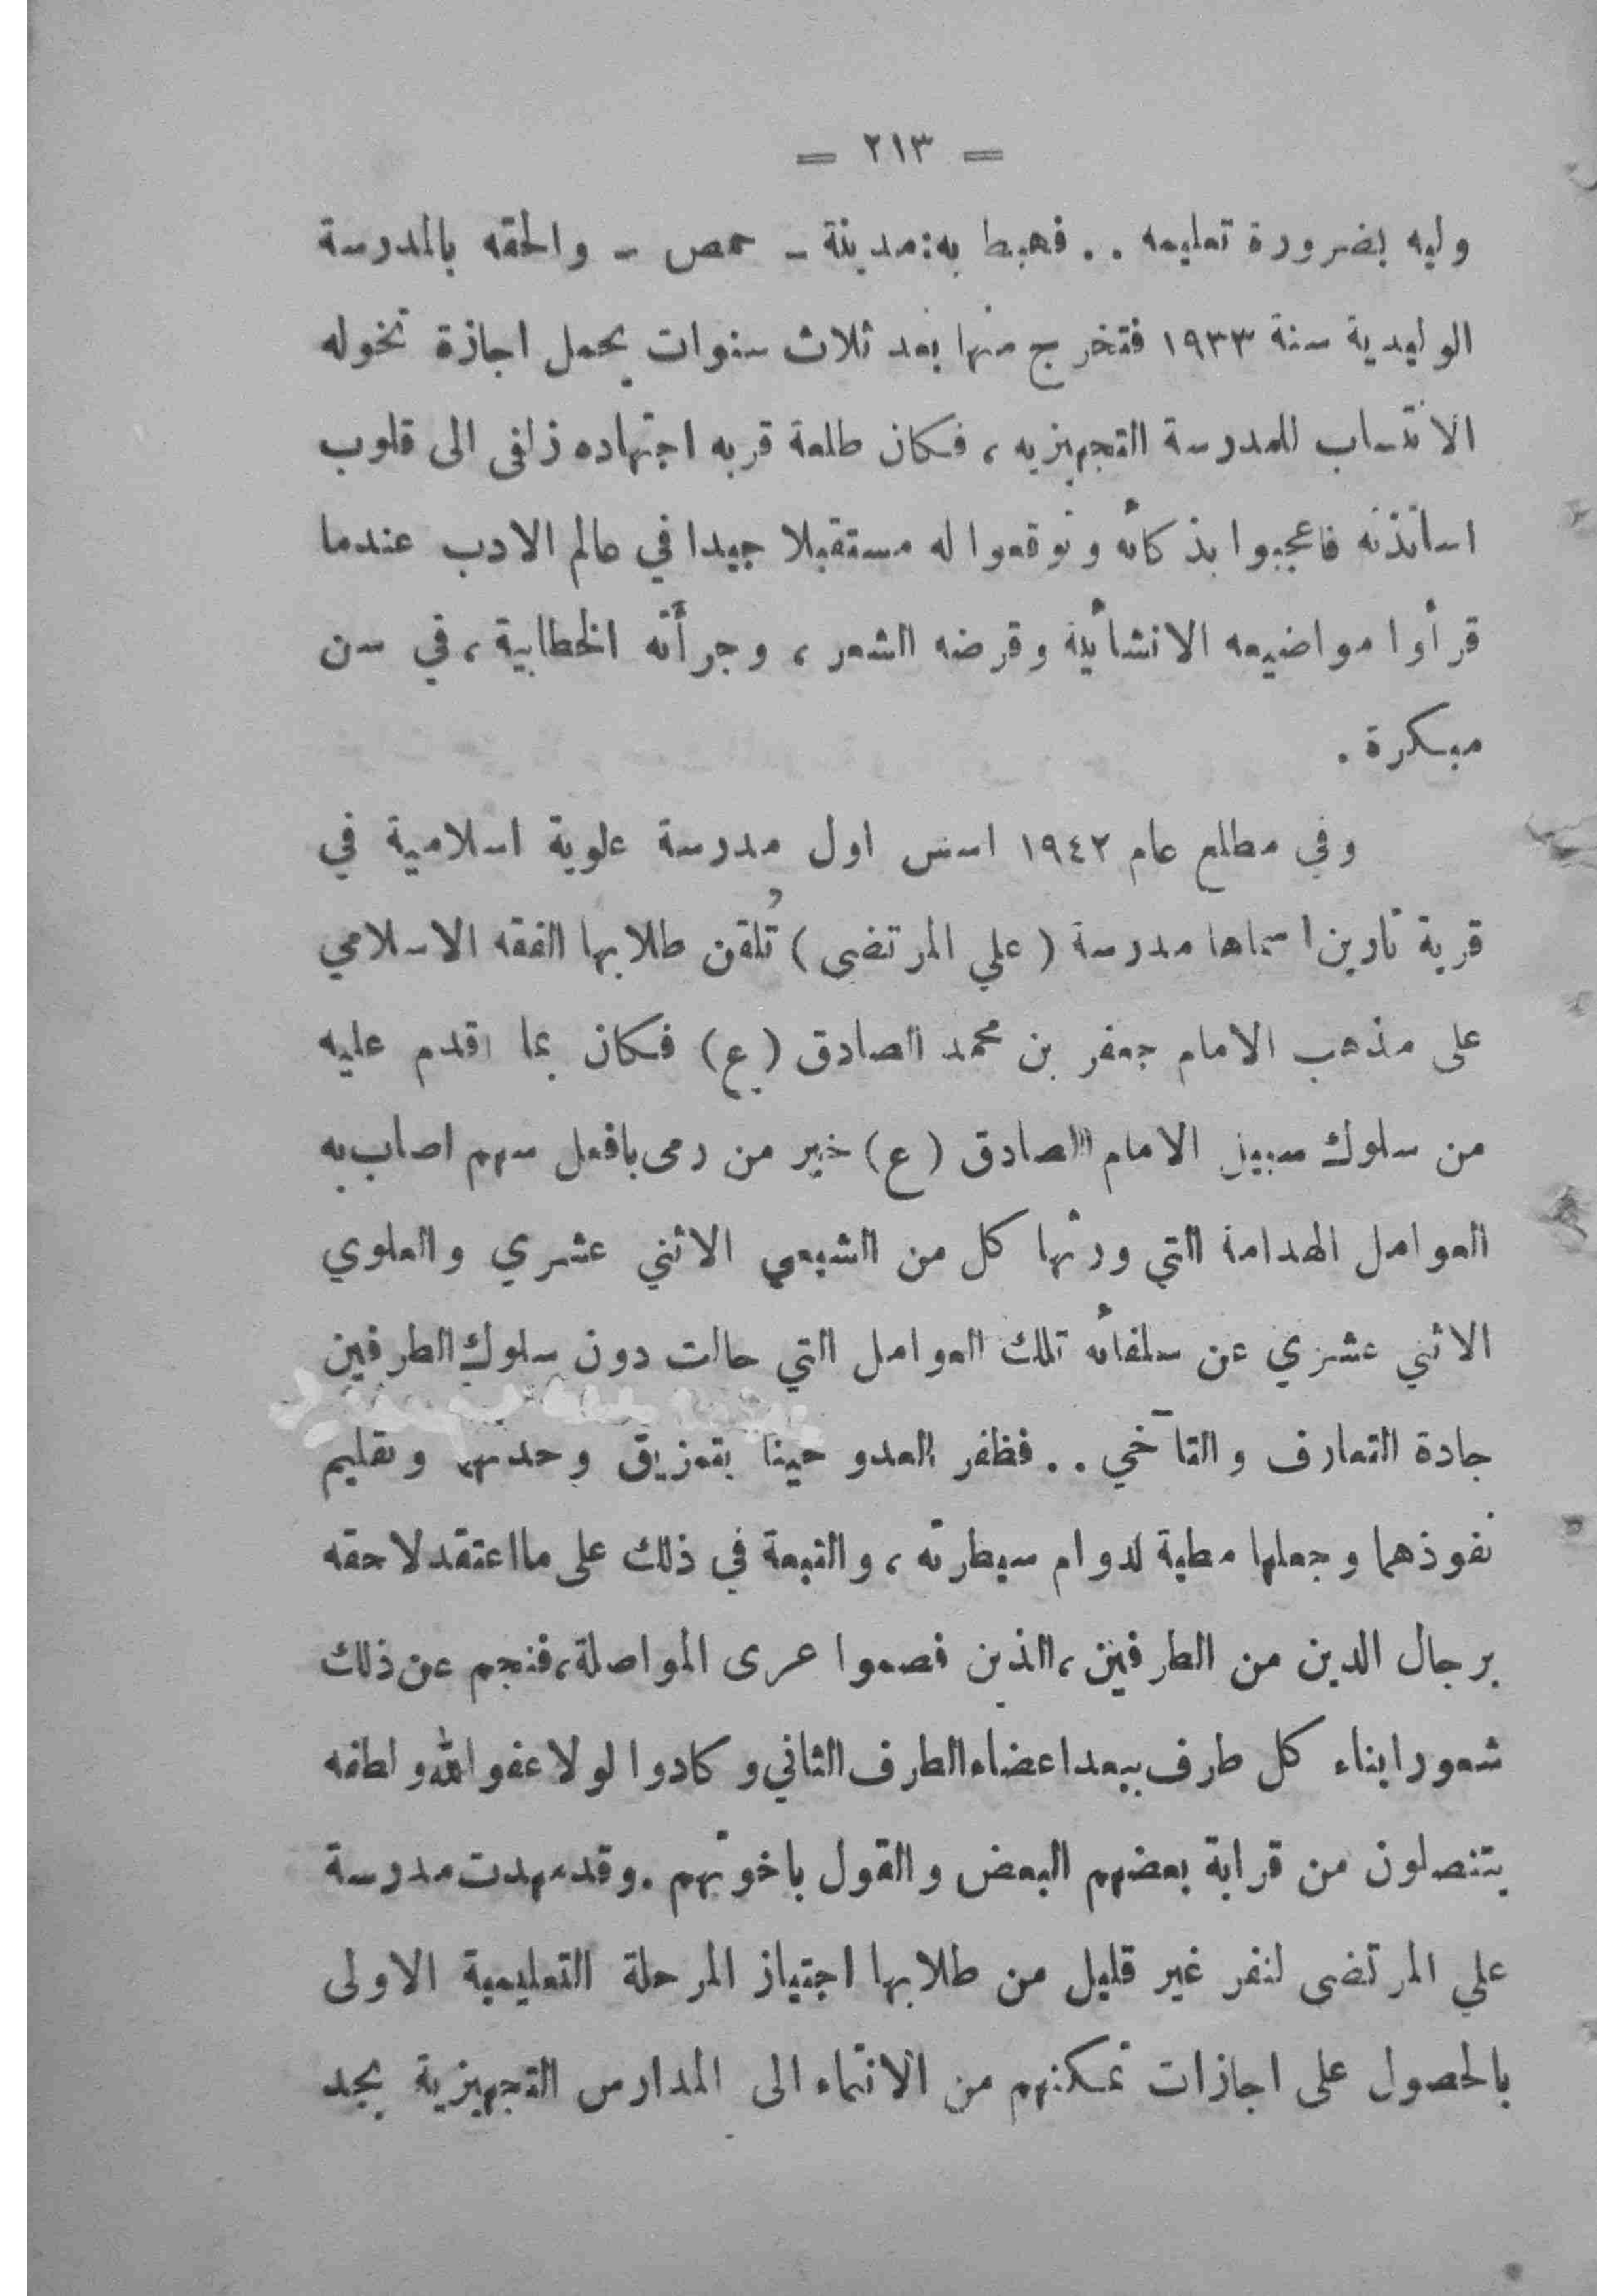 = ٢١٣ =
وليه بضرورة تعليمه . . فهبط به:مدينة – حمص – والحقه بالمدرسة
الوليدية سنة ١٩٣٣ فتخرج منها بعد ثلاث سنوات يحمل اجازة تخوله
الانتساب للمدرسة التجهيزيه ، فكان طلعة قربه اجتهاده زلفى الى قلوب
اساتذته فاعجبوا بذكائه وتوقعوا له مستقبلا جيدا في عالم الادب عندما
قرأوا مواضيعه الانشائية وقرضه الشعر ، وجرأته الخطابية ، في سن
مبكرة .
وفي مطلع عام ١٩٤٢ اسس اول مدرسة علوية اسلامية في
قرية تارين اسماها مدرسة ( علي المرتضى ) تُلقن طلابها الفقه الاسلامي
على مذهب الامام جعفر بن محمد الصادق (ع) فكان بما اقدم عليه
من سلوك سبيل الامام الصادق (ع) خير من رمى بافعل سهم اصاب به
العوامل الهدامة التي ورثها كل من الشيعي الاثني عشري والعلوي
الاثني عشري عن سلفائه تلك العوامل التي حالت دون سلوك الطرفين
جادة التعارف والتآخي . . فظفر العدو حينا بتمزيق وحدتهما وتقليم
نفوذهما وجعلها مطية لدوام سيطرته ، والتبعة في ذلك على ما اعتقد لاحقه
برجال الدين من الطرفين ، الذين فصموا عرى المواصلة ، فنجم عن ذلك
شعور ابناء كل طرف ببعد اعضاء الطرف الثاني وكادوا لولا عفو الله ولطفه
يتنصلون من قرابة بعضهم البعض والقول باخوتهم . وقد مهدت مدرسة
علي المرتضى لنفر غير قليل من طلابها اجتياز المرحلة التعليمية الاولى
بالحصول على اجازات تمكنهم من الانتماء الى المدارس التجهيزية بجد